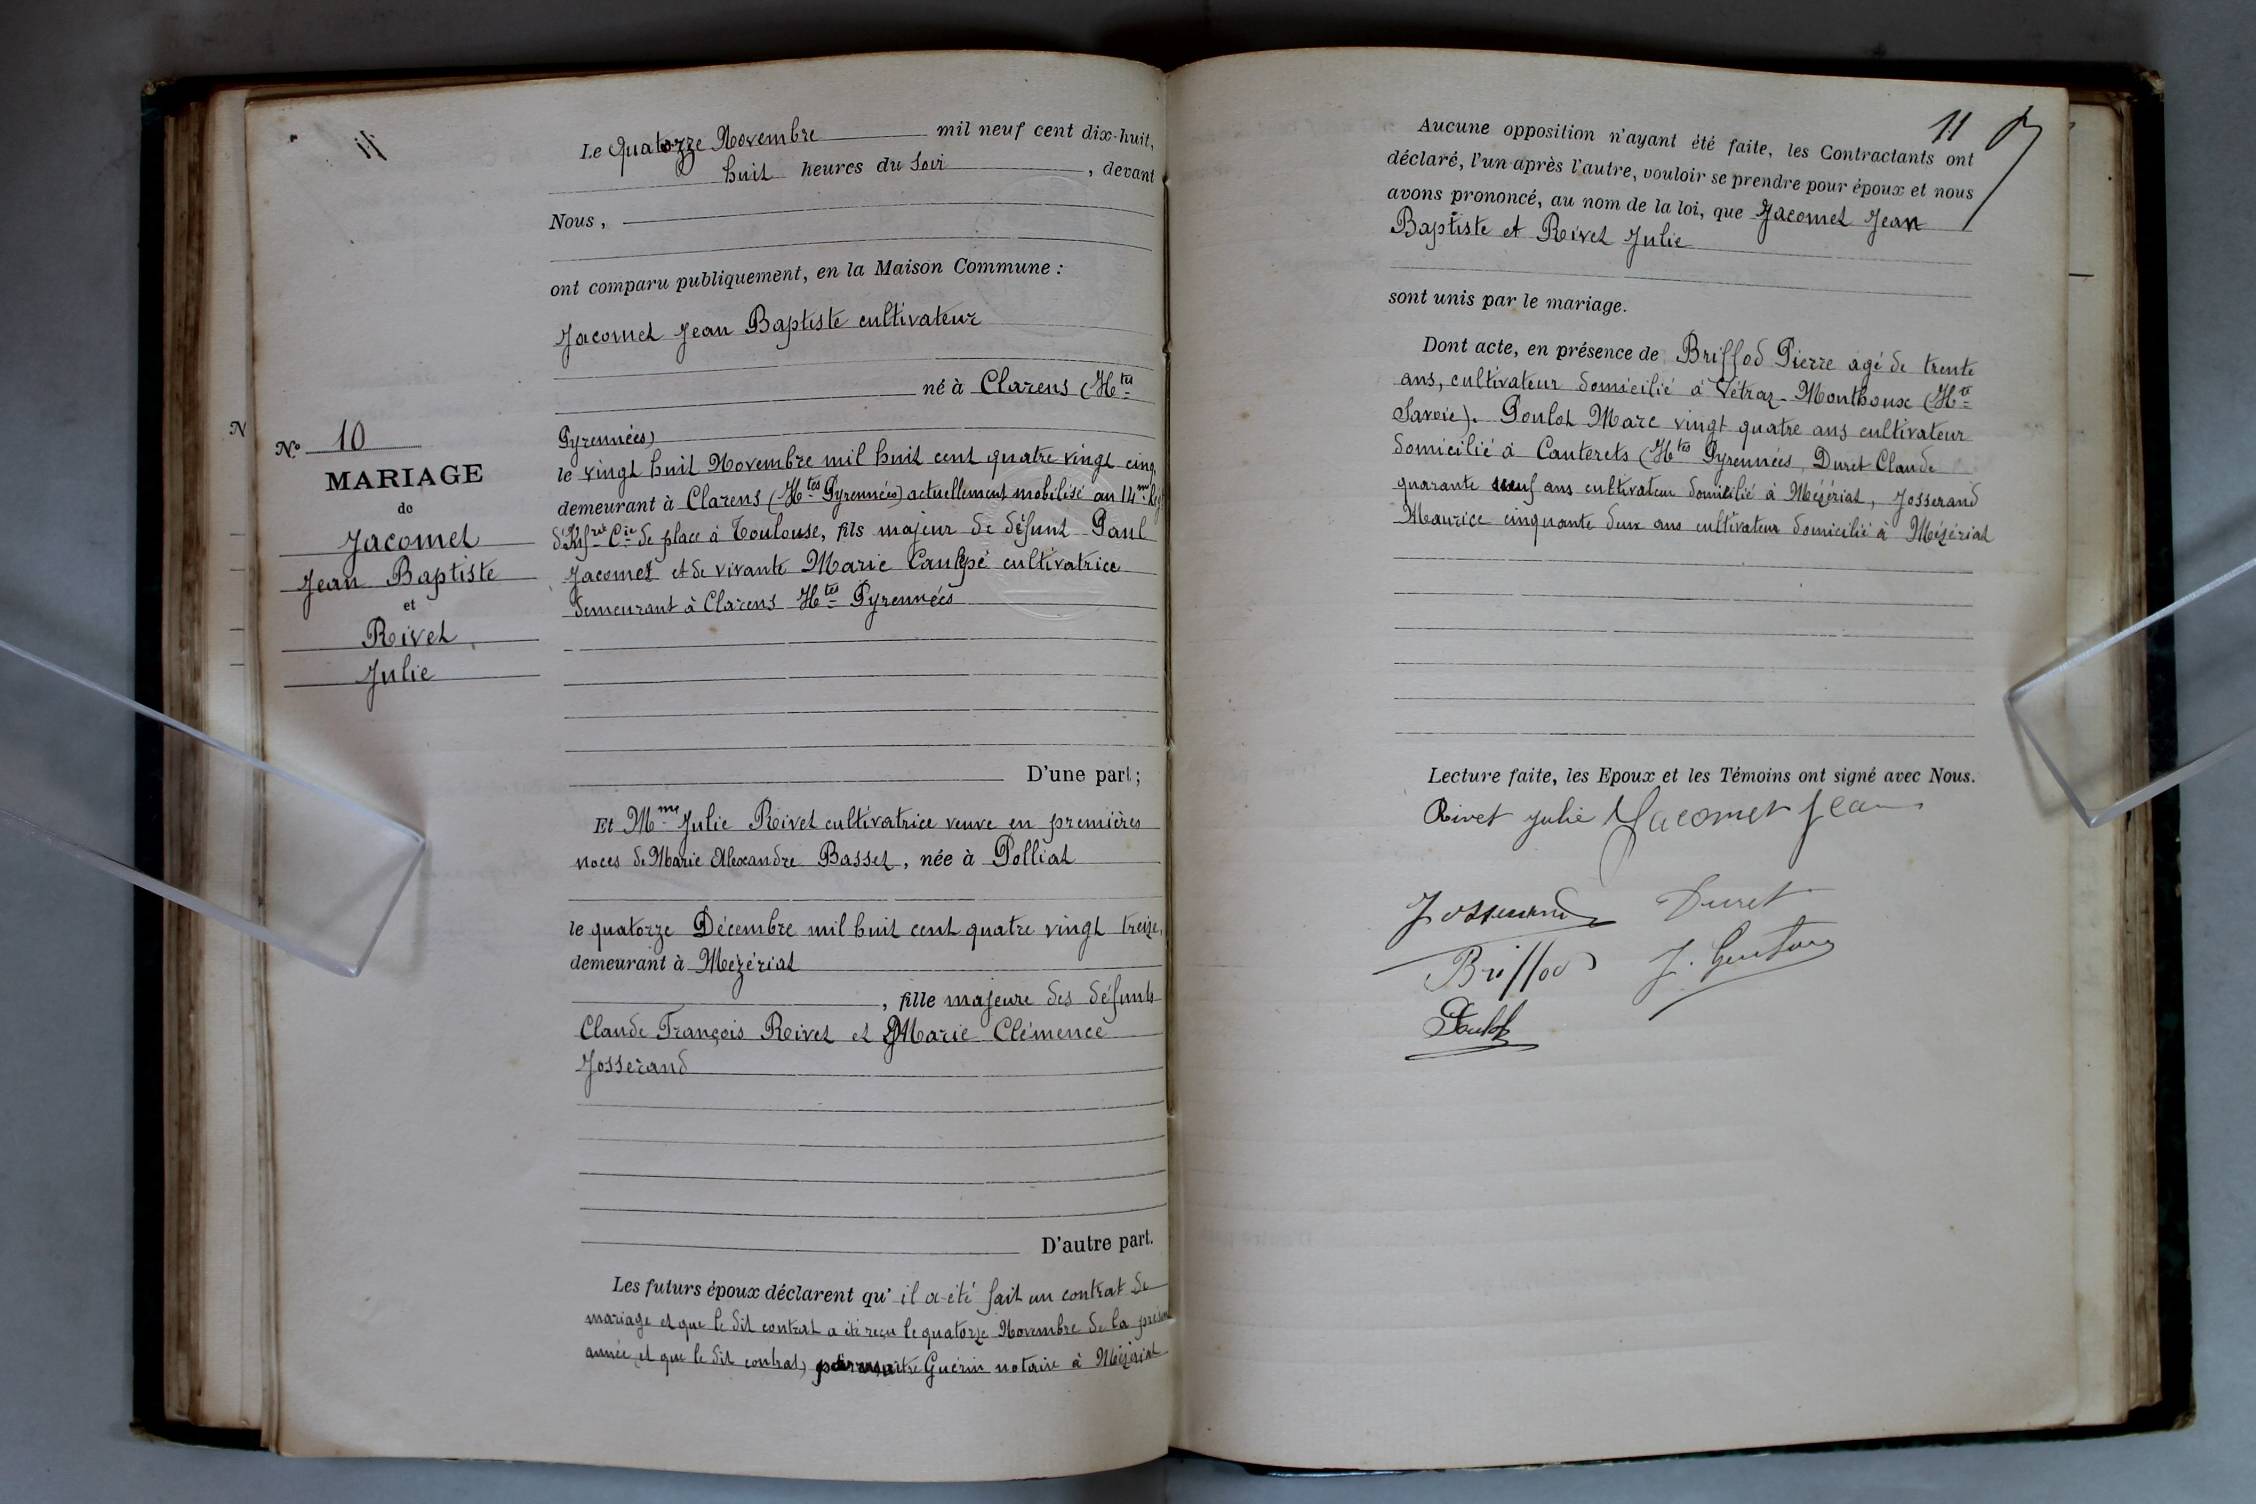 11
Le Quatorze Novembre mil neuf cent dix-huit,
huit heures du Soir, devant
Nous,
ont comparu publiquement, en la Maison Commune :
Jacomet Jean Baptiste cultivateur
né à Clarens (Htes
Pyrennées)
le vingt huit Novembre mil huit cent quatre vingt cinq,
demeurant à Clarens (Htes Pyrennées) actuellement mobilisé au 14me Regt
d'Infrie Cie de place à Toulouse, fils majeur de défunt Paul
Jacomet et de vivante Marie Caulépé cultivatrice
demeurant à Clarens Htes Pyrennées
N
No 10
MARIAGE
de
Jacomet
Jean Baptiste
et
Rivet
Julie
D'une part;
Et Mme Julie Rivet cultivatrice veuve en premières
noces de Marie Alexandre Basset, née à Polliat
le quatorze Décembre mil huit cent quatre vingt treize,
demeurant à Mézériat
, fille majeure des défunts
Claude François Rivet et Marie Clémence
Josserand
D'autre part.
Les futurs époux déclarent qu'il a été fait un contrat de
mariage et que le dit contrat a été reçu le quatorze Novembre de la présente
année et que le dit contrat, par maître Guérin notaire à Mézériat
11
Aucune opposition n'ayant été faite, les Contractants ont
déclaré, l'un après l'autre, vouloir se prendre pour époux et nous
avons prononcé, au nom de la loi, que Jacomet Jean
Baptiste et Rivet Julie
sont unis par le mariage.
Dont acte, en présence de Briffod Pierre agé de trente
ans, cultivateur domicilié à Vétraz-Monthoux (Hte
Savoie). Poulot Marc vingt quatre ans cultivateur
domicilié à Cauterets (Htes Pyrennées, Duret Claude
quarante neuf ans cultivateur domicilié à Mézériat, Josserand
Maurice cinquante deux ans cultivateur domicilié à Mézériat
Lecture faite, les Epoux et les Témoins ont signé avec Nous.
Rivet Julie Jacomet Jean
Josserand Duret
Briffod
Poulot